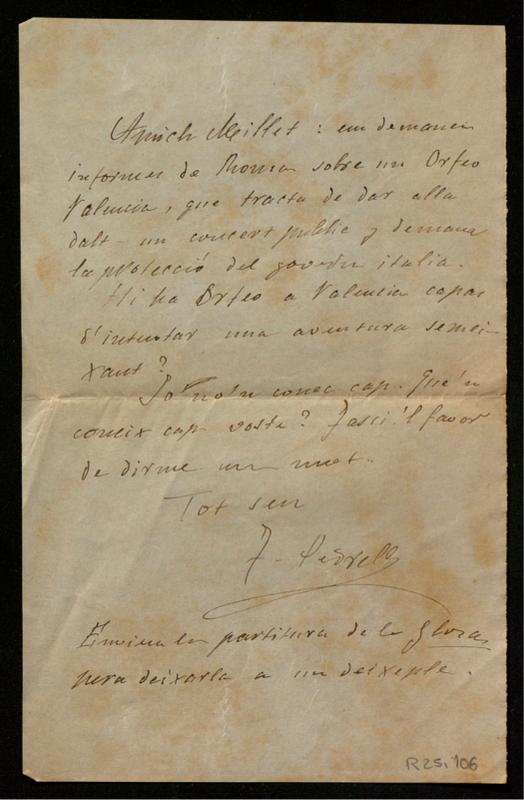 Amich Millet: em demanen
informes de Roma sobre un Orfeo
Valencia, que tracta de dar alla
dalt un concert public y demana
la protecció del govern italia.
Hi ha Orfeo a Valencia capas
d'intentar una aventura semei-
xant?
Jo no'n conec cap. Que'n
coneix cap voste? Fassi'l favor
de dirme un mot.
Tot seu
F. Pedrell
Envieu la partitura de la Glosa
pera deixarla a un deixeple.
R25,106